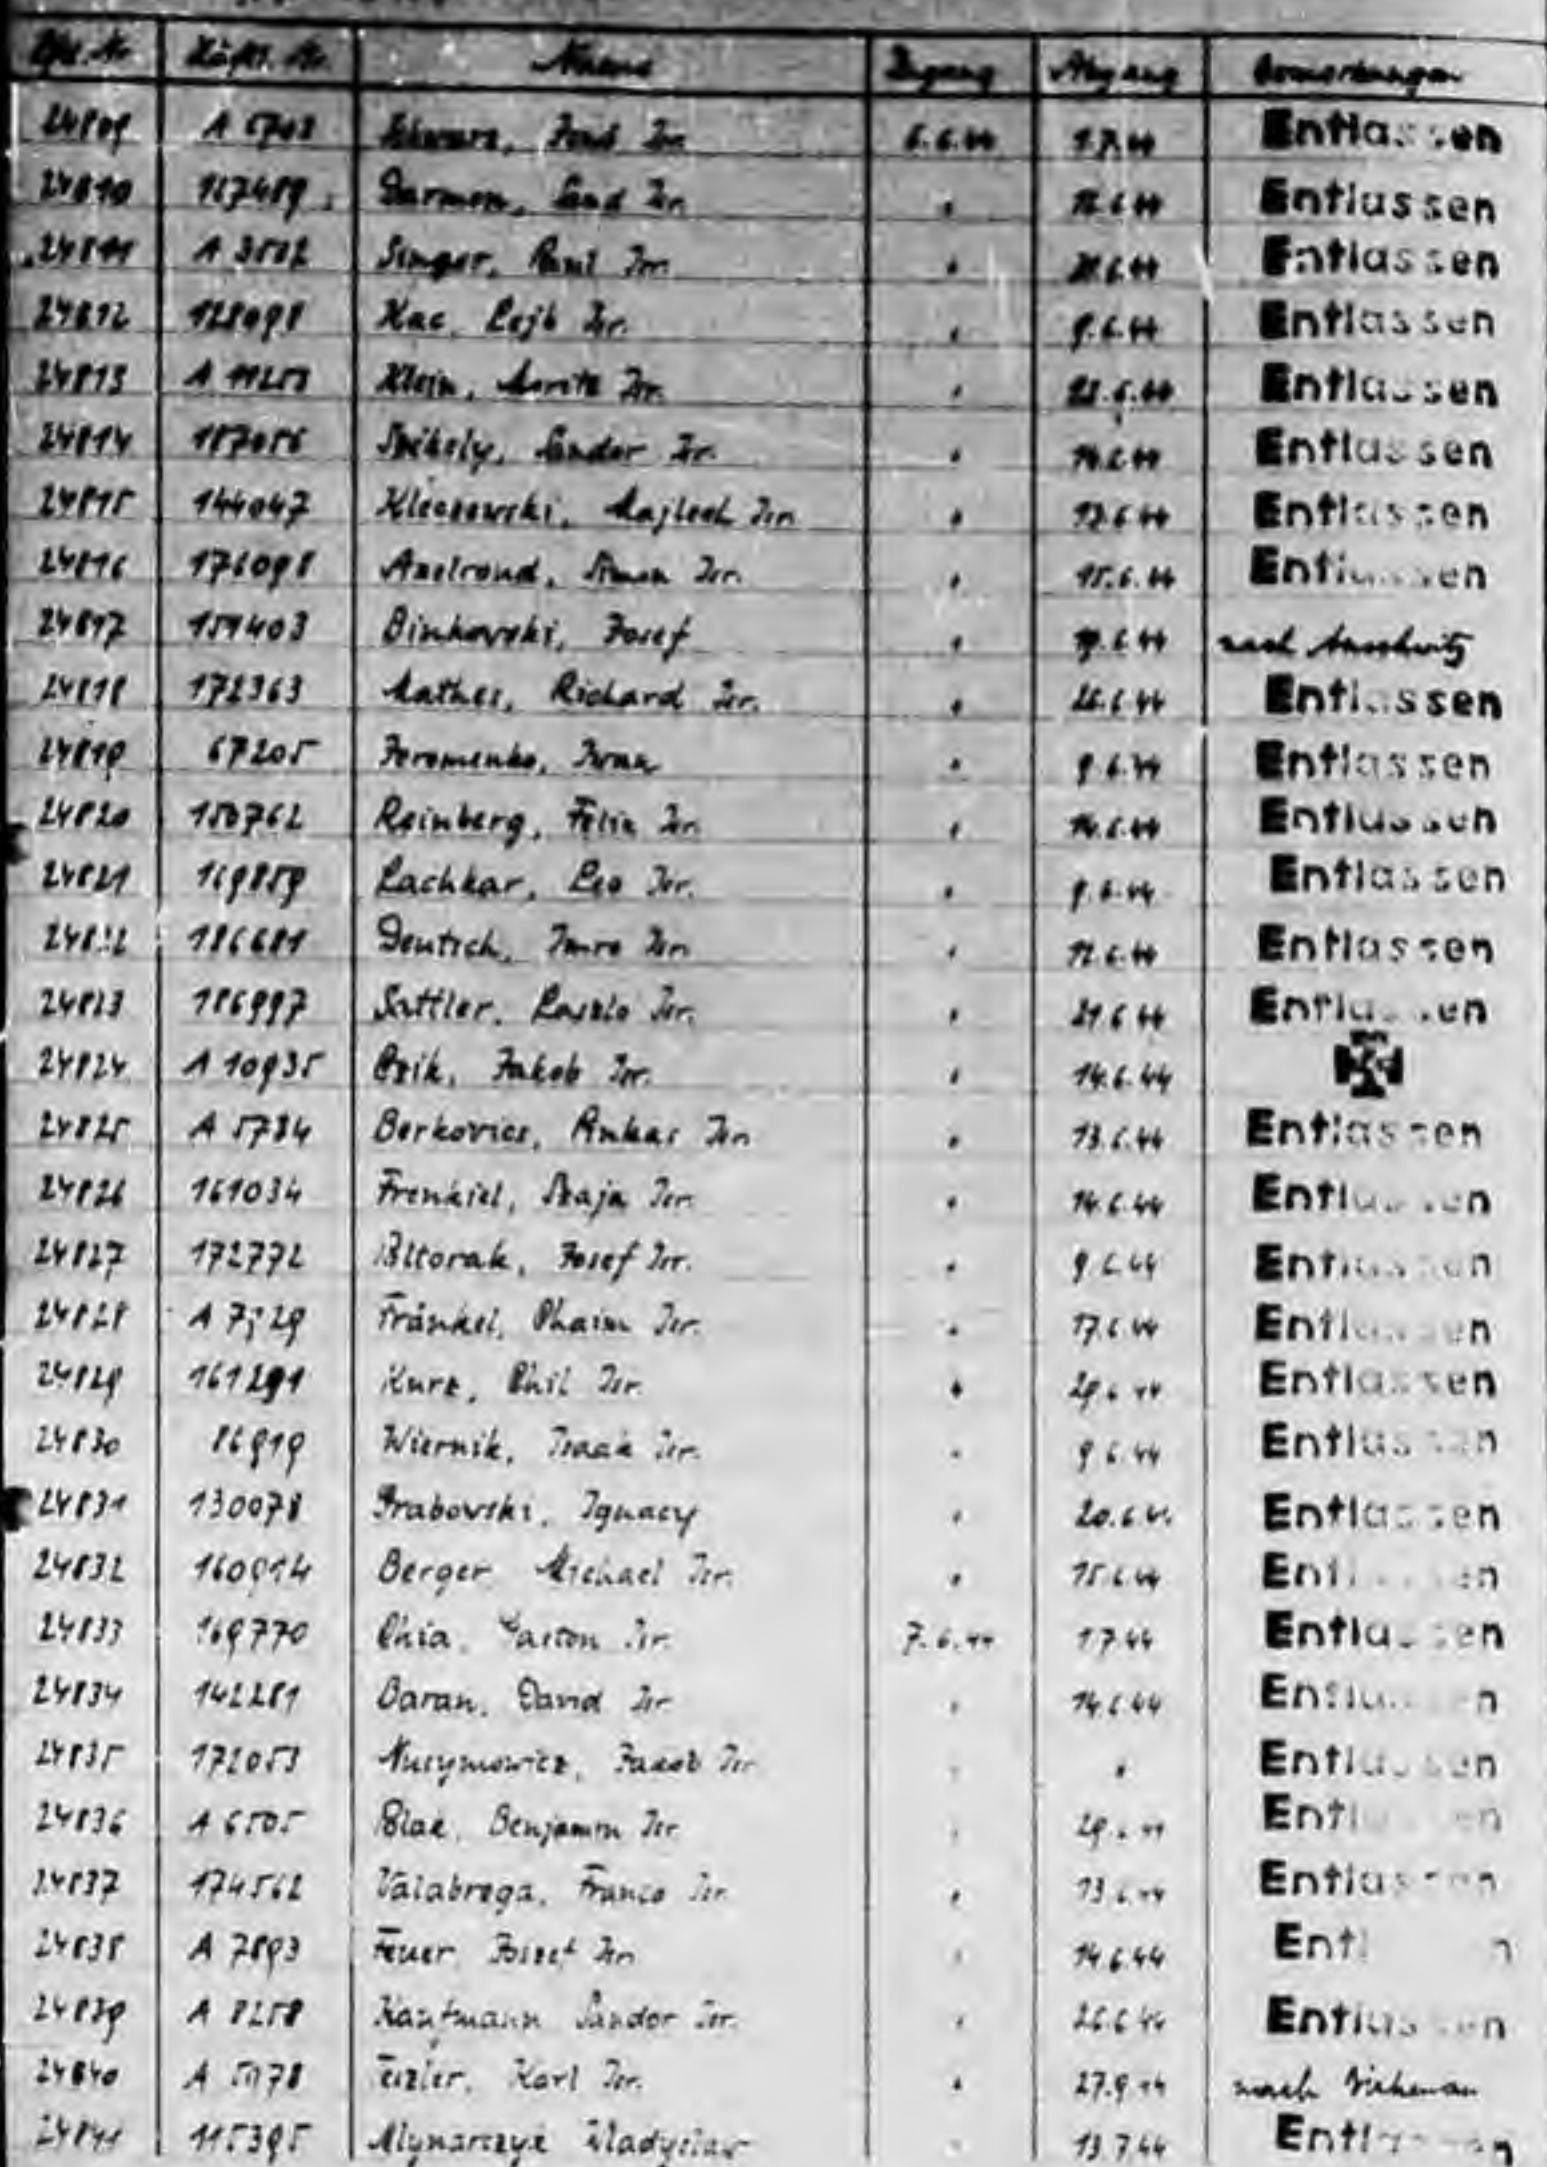 Lfd. Nr. Häftl. Nr. Name Zugang Abgang Bemerkungen
24809 A 5702 Schwarz, Isr. 6.6.44 1.7.44 Entlassen
24810 167489 Darmon, Isr. " Entlassen
24811 A 3582 Singer, Isr. " Entlassen
24812 128098 Kac, Lejb Isr. " 9.6.44 Entlassen
24813 A 11253 Klein, Moritz Isr. " Entlassen
24814 187086 Székely, Sandor Isr. " 14.6.44 Entlassen
24815 144047 Kleczewski, Majloch Isr. " Entlassen
24816 176098 Axelroud, Simon Isr. " 15.6.44 Entlassen
24817 151403 Binkowski, Josef " 19.6.44 nach Auschwitz
24818 172363 Mathes, Richard Isr. " 26.6.44 Entlassen
24819 67205 Jeromenko, Iwan " 9.6.44 Entlassen
24820 150762 Reinberg, Felix Isr. " 14.6.44 Entlassen
24821 169859 Lachkar, Leo Isr. " 9.6.44 Entlassen
24822 186681 Deutsch, Imre Isr. " 12.6.44 Entlassen
24823 186997 Sattler, Laszlo Isr. " 21.6.44 Entlassen
24824 A 10935 Czik, Jakob Isr. " 14.6.44
24825 A 5784 Berkovics, Pinkas Isr. " 13.6.44 Entlassen
24826 161034 Frenkiel, Szaja Isr. " 14.6.44 Entlassen
24827 172772 Poltorak, Josef Isr. " 9.6.44 Entlassen
24828 A 7 29 Fränkel, Chaim Isr. " 17.6.44 Entlassen
24829 161291 Kurz, Chil Isr. " 29.6.44 Entlassen
24830 86919 Wiernik, Isaak Isr. " 9.6.44 Entlassen
24831 130078 Grabowski, Ignacy " 20.6.44 Entlassen
24832 160914 Berger Michael Isr. " 15.6.44 Entlassen
24833 169770 Chia, Gaston Isr. 7.6.44 1.7.44 Entlassen
24834 142281 Baran, David Isr. " 14.6.44 Entlassen
24835 172053 Nusymowicz, Jakob Isr. " " Entlassen
24836 A 6505 Blak, Benjamin Isr. " 29.6.44 Entlassen
24837 174562 Valabrega, Franco Isr. " 13.6.44 Entlassen
24838 A 7893 Feuer Jozsef Isr. " 14.6.44 Entlassen
24839 A 8258 Kaufmann Sandor Isr. " 26.6.44 Entlassen
24840 A Karl Isr. " 27.9.44 nach Birkenau
24841 115395 Mlynarczyk Wladyslaw " 13.7.44 Entlassen